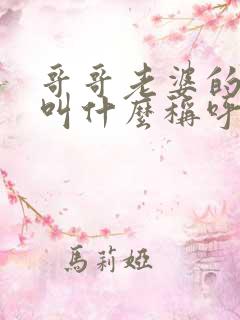 哥哥老婆的
叫什麼稱呼
馬莉婭